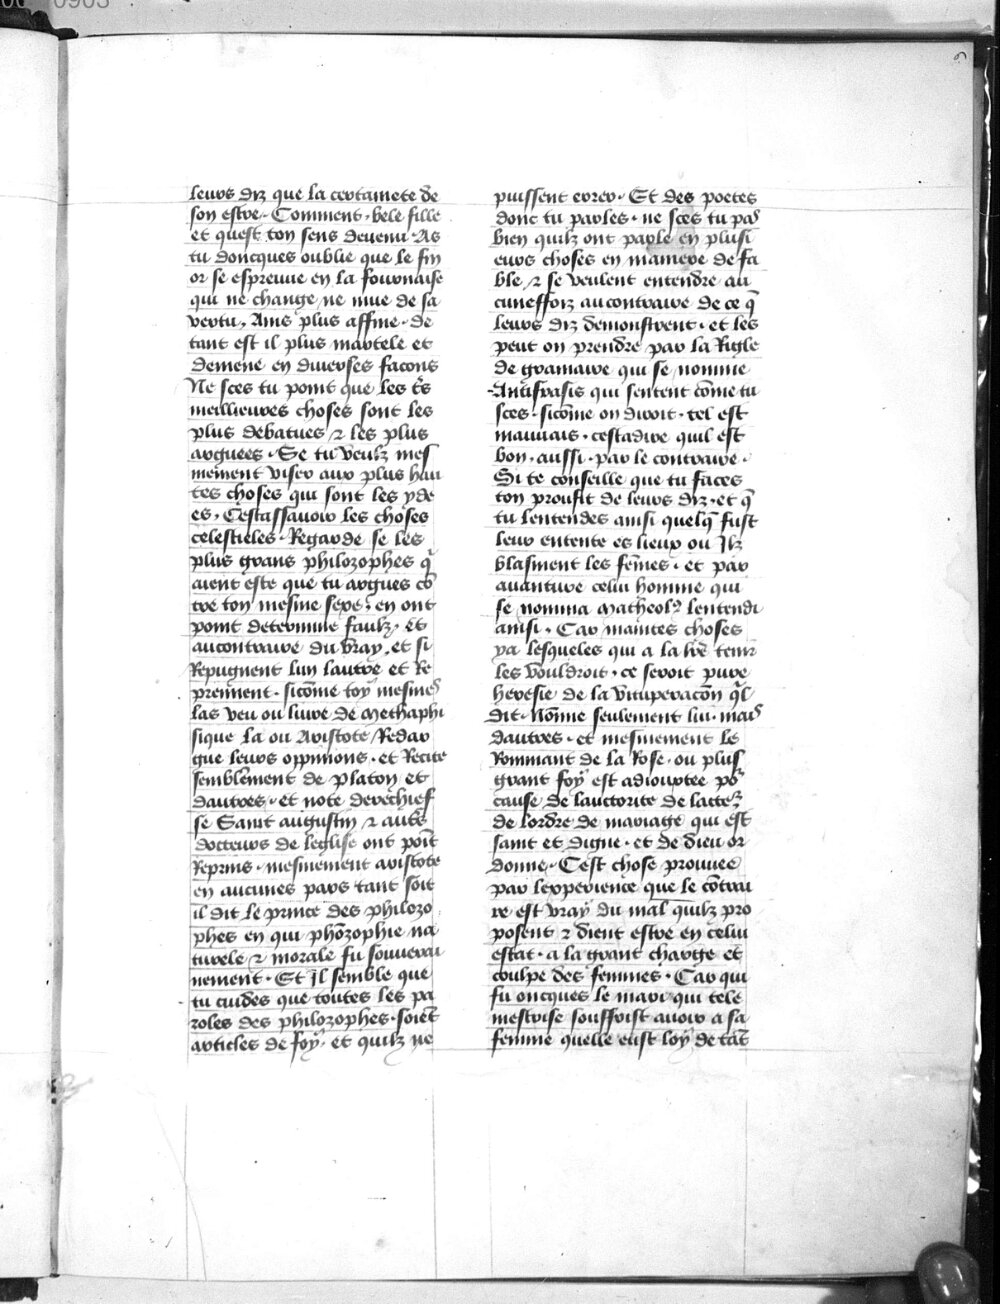 leurs diz que la certainete de
son estre. Comment. bele fille
et quest ton sens devenu. As
tu doncques oublie que le fin
or se espreuve en la fournaise
qui ne change ne mue de sa
vertu. Ains plus affine. de
tant est il plus martele et
demene en diverses facons
Ne sces tu point que les t̃s
meillieures choses sont les
plus debatues ⁊ les plus
arguees. Se tu veulz mes
mement viser aux plus hau
tes choses qui sont les yde
es. Cestassavoir les choses
celestieles. Regarde se les
plus grans philozophes q̃
aient este que tu argues cõ
tre ton mesme sexe. en ont
point determine faulz. Et
aucontraire du vray. et si
Repugnent lun lautre et Re
prennent. sicõme toy mesmes
las veu ou livre de Methaphi
sique la ou Aristote Redar
gue leurs oppinions. et Recite
semblement de platon et
dautres. et note derechief
se Saint augustin ⁊ autr̃s
docteurs de leglise ont poĩt
Reprins. mesmement aristote
en aucunes pars tant soit
il dit le prince des philozo
phes en qui phõzophie na
turele ⁊ morale fu souverai
nement. Et Il semble que
tu cuides que toutes les pa
roles des philozophes. soiẽt
articles de foy. et quilz ne
puissent errer. Et des poetes
donc tu parles. ne sces tu pas
bien quilz ont parle en plusi
eurs choses en maniere de fa
ble ⁊ se veulent entendre au
cuneffoiz aucontraire de ce q̃
leurs diz demonstrent. et les
peut on prendre par la Rigle
de gramaire qui se nomme
Antifrasis qui sentent cõme tu
sces. sicõme on diroit. tel est
mauvais. cestadire quil est
bon. aussi. par le contraire.
Si te conseille que tu faces
ton proufit de leurs diz. et q̃
tu lentendes ainsi quelq̃ fust
leur entente es lieux ou Ilz
blasment les fẽmes. et par
aventure celui homme qui
se nomma Matheolꝰ lentendi
ainsi. Car maintes choses
ya lesqueles qui a la lr̃e tenir
les vouldroit. ce seroit pure
heresie de la vituperacõn q̃l
dit. Nõnie seulement lui. mais
dautres. et mesmement le
Rommant de la Rose. ou plus
grant foy est adioustee põ
cause de lauctorite de lacteᵣ
de lordre de mariage qui est
saint et digne. et de dieu or
donne. Cest chose prouvee
par lexperience que le cõtrai
re est vray du mal quilz pro
posent ⁊ dient estre en celui
estat. a la grant charge et
coulpe des femmes. Car qui
fu oncques le mari qui tele
mestrise souffrist avoir a sa
femme quelle eust loy de tãt